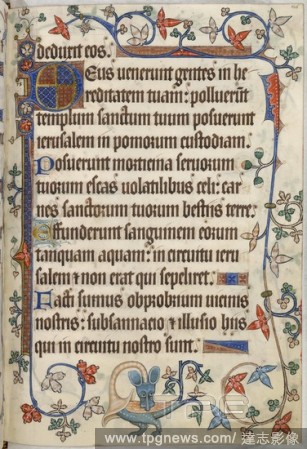 deduxit eos.
Deus venerunt gentes in he
reditatem tuam: polluerunt
templum sanctum tuum posuerunt
ierusalem in pomorum custodiam.
Posuerunt morticina seruorum
tuorum escas uolatilibus celi: car
nes sanctorum tuorum bestiis terre.
Effunderunt sanguinem eorum
tanquam aquam: in circuitu ieru
salem & non erat qui sepeliret.
Facti sumus obprobrium uicinis
nostris: subsannacio & illusio hiis
qui in circuitu nostro sunt.
www.tpgnews.com/ 達志影像